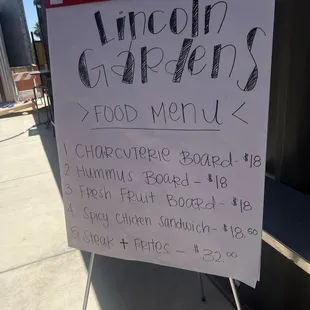 Lincoln
Gardens
> FOOD MENU <
1 CHARCUTERIE BOARD - $18
2 HUMMUS BOARD - $18
3 FRESH FRUIT BOARD - $18
4 SPICY CHICKEN SANDWICH - $18.50
5 STEAK + FRITES - $32.00